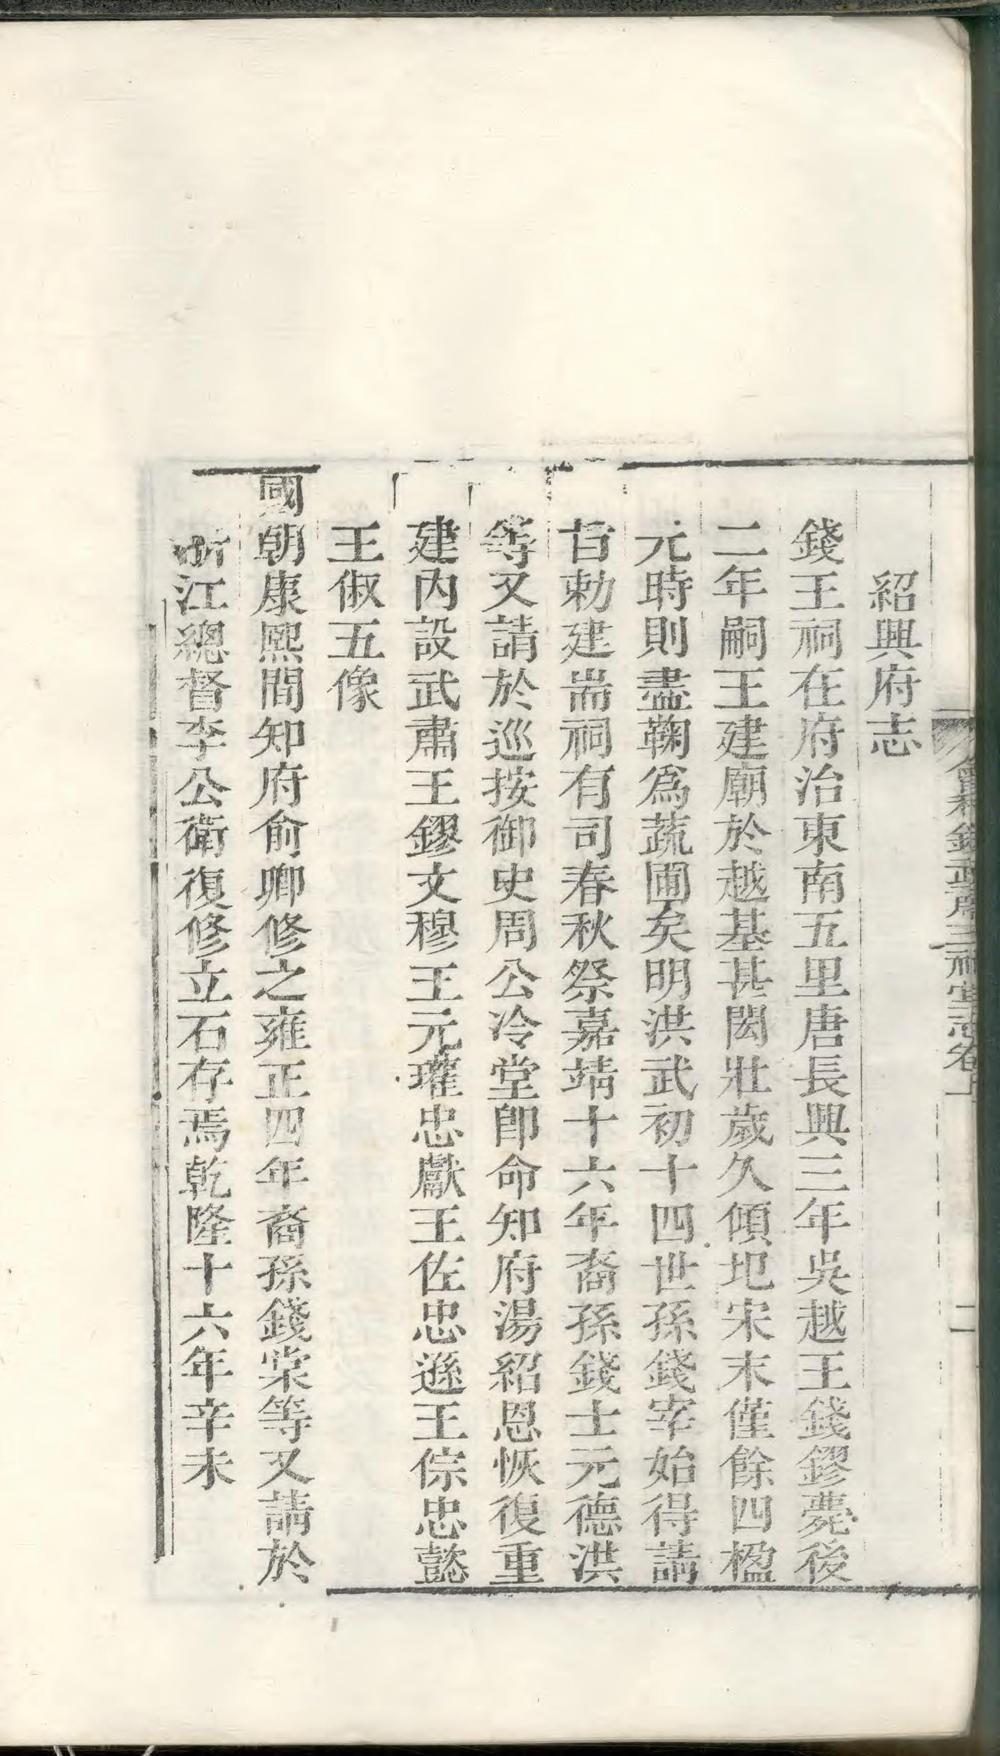 紹興府志
錢王祠在府治東南五里唐長興三年吳越王錢鏐薨後
二年嗣王建廟於越基甚閎壯歲久傾圯宋末僅餘四楹
元時則盡鞠爲蔬圃矣明洪武初十四世孫錢宰始得請
旨勅建耑祠有司春秋祭嘉靖十六年裔孫錢士元德洪
等又請於巡按御史周公冷堂卽命知府湯紹恩恢復重
建內設武肅王鏐文穆王元瓘忠獻王佐忠遜王倧忠懿
王俶五像
國朝康熙間知府俞卿修之雍正四年裔孫錢棠等又請於
浙江總督李公衛復修立石存焉乾隆十六年辛未
錢武肅王祠堂志卷上
二